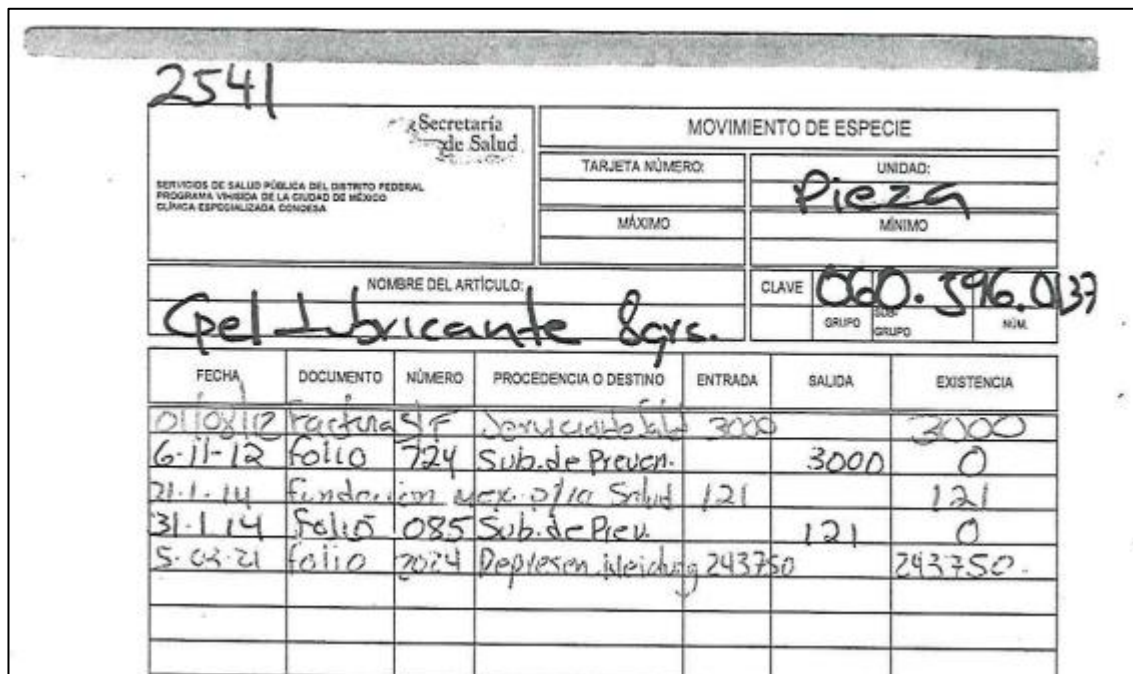 2541
Secretaría
de Salud
SERVICIOS DE SALUD PÚBLICA DEL DISTRITO FEDERAL
PROGRAMA VIH/SIDA DE LA CIUDAD DE MÉXICO
CLÍNICA ESPECIALIZADA CONDESA
MOVIMIENTO DE ESPECIE
TARJETA NÚMERO: UNIDAD:
Pieza
MÁXIMO MÍNIMO
NOMBRE DEL ARTÍCULO:
Gel Lubricante 8grs.
CLAVE 060.596.0137
GRUPO SUB GRUPO NÚM.
FECHA DOCUMENTO NÚMERO PROCEDENCIA O DESTINO ENTRADA SALIDA EXISTENCIA
01/08/12 Factura S/F 3000 3000
6-11-12 folio 724 Sub. de Preven. 3000 0
21-1-14 fundacion Mex. p/la Salud 121 121
31-1-14 Folio 085 Sub. de Prev. 121 0
folio 2024 243750 243750.